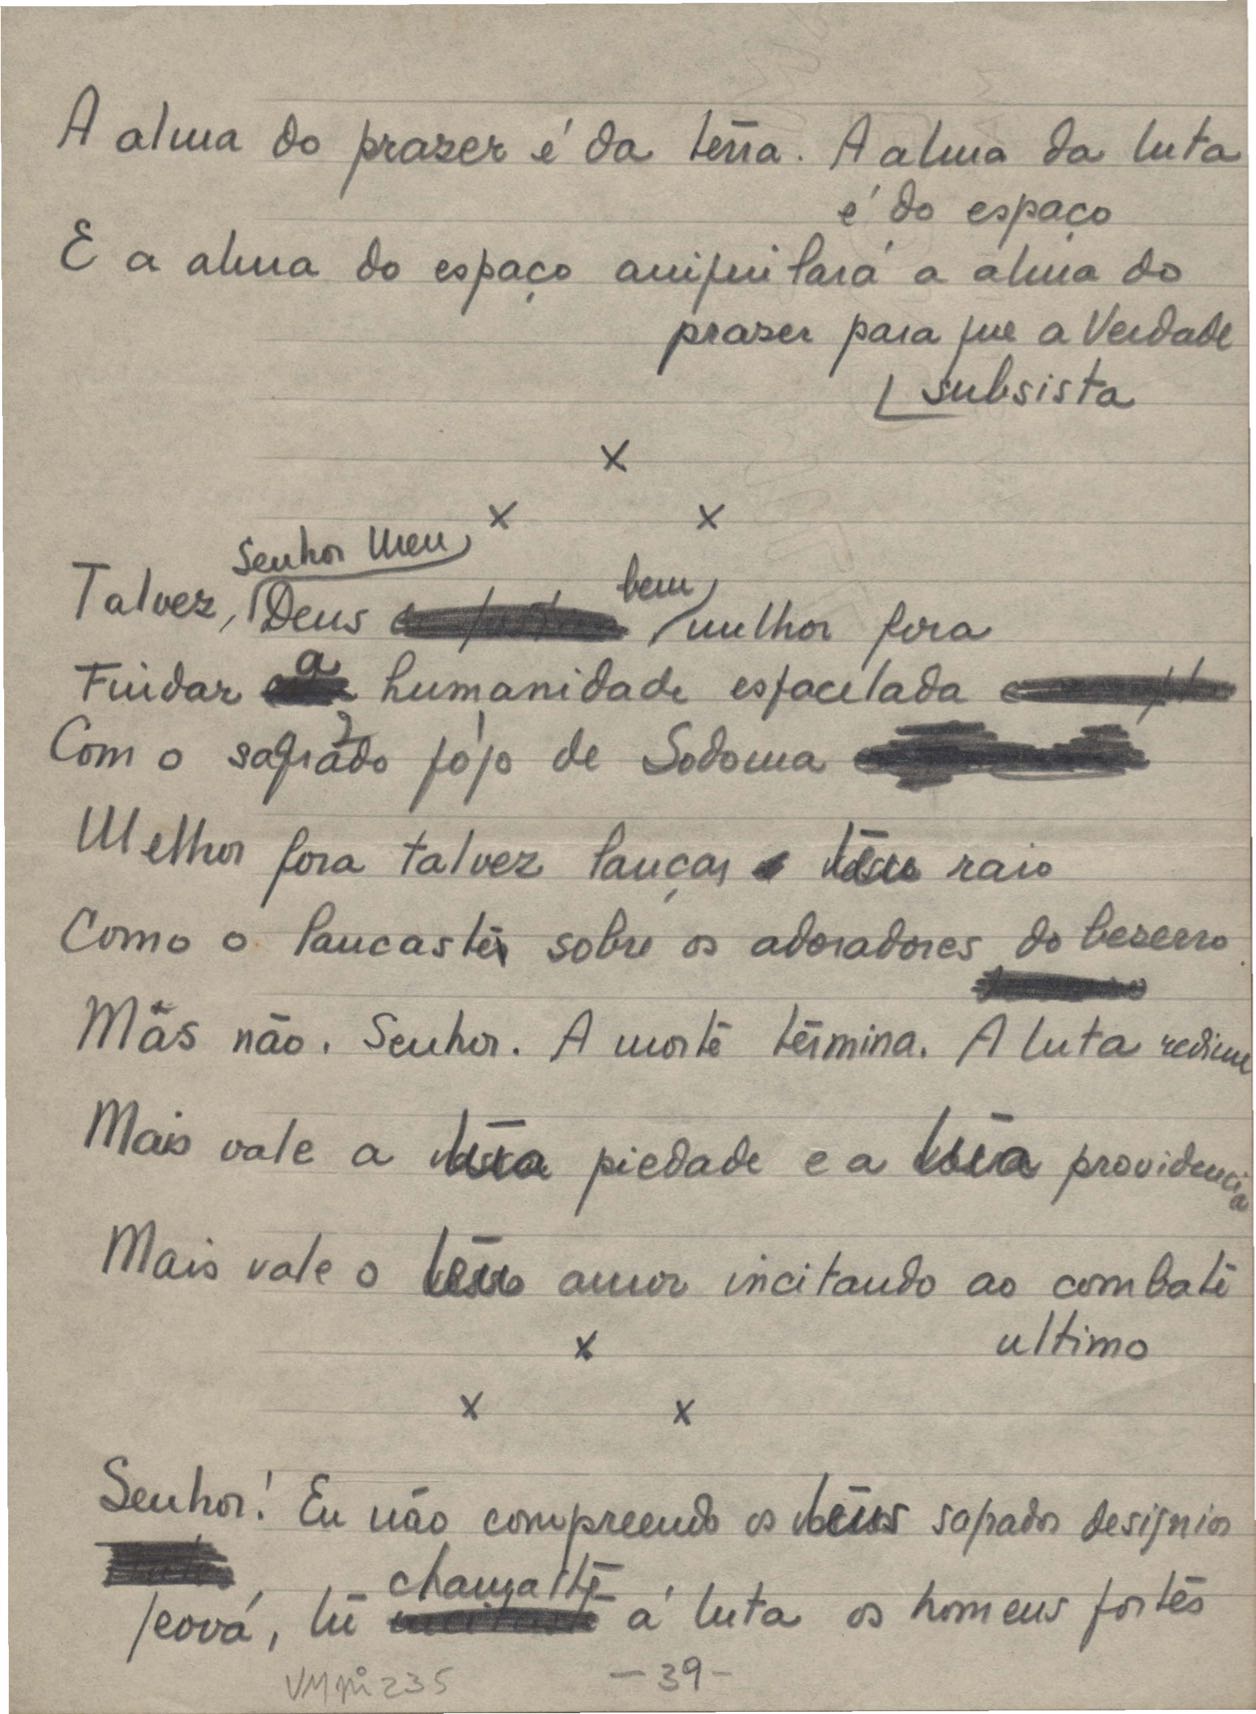 A alma do prazer é da terra. A alma da luta
é do espaço
E a alma do espaço aniquilará a alma do
prazer para que a Verdade
subsista
x
x x
Senhor Meu
Talvez, Deus bem melhor fora
Findar a humanidade esfacelada
Com o sagrado fôgo de Sodoma
Melhor fora talvez lançar teu raio
Como o lancaste sobre os adoradores do bezerro
Mas não. Senhor. A morte termina. A luta redime
Mais vale a tua piedade e a tua providencia
Mais vale o teu amor incitando ao combate
ultimo
x
x x
Senhor! Eu não compreendo os teus sagrados designios
chamaste
Jeová, tu á luta os homens fortes
VM 235
-39-